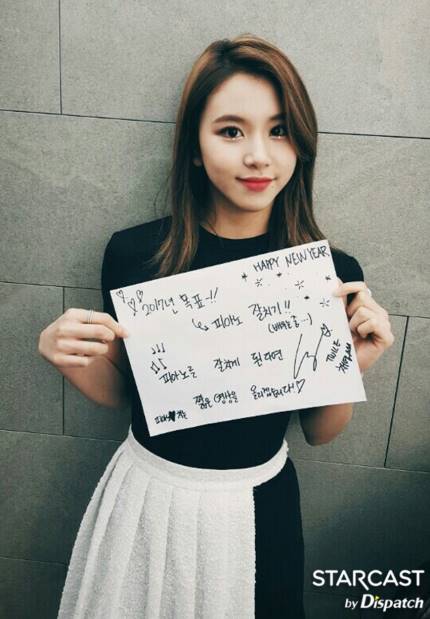 HAPPY NEW YEAR
2017년 목표~!!
↳ 피아노 잘치기!!
(배우는 중...)
피아노를 잘치게 된다면
짧은 영상을 올리겠습니다!♡
TWICE
STARCAST
by Dispatch